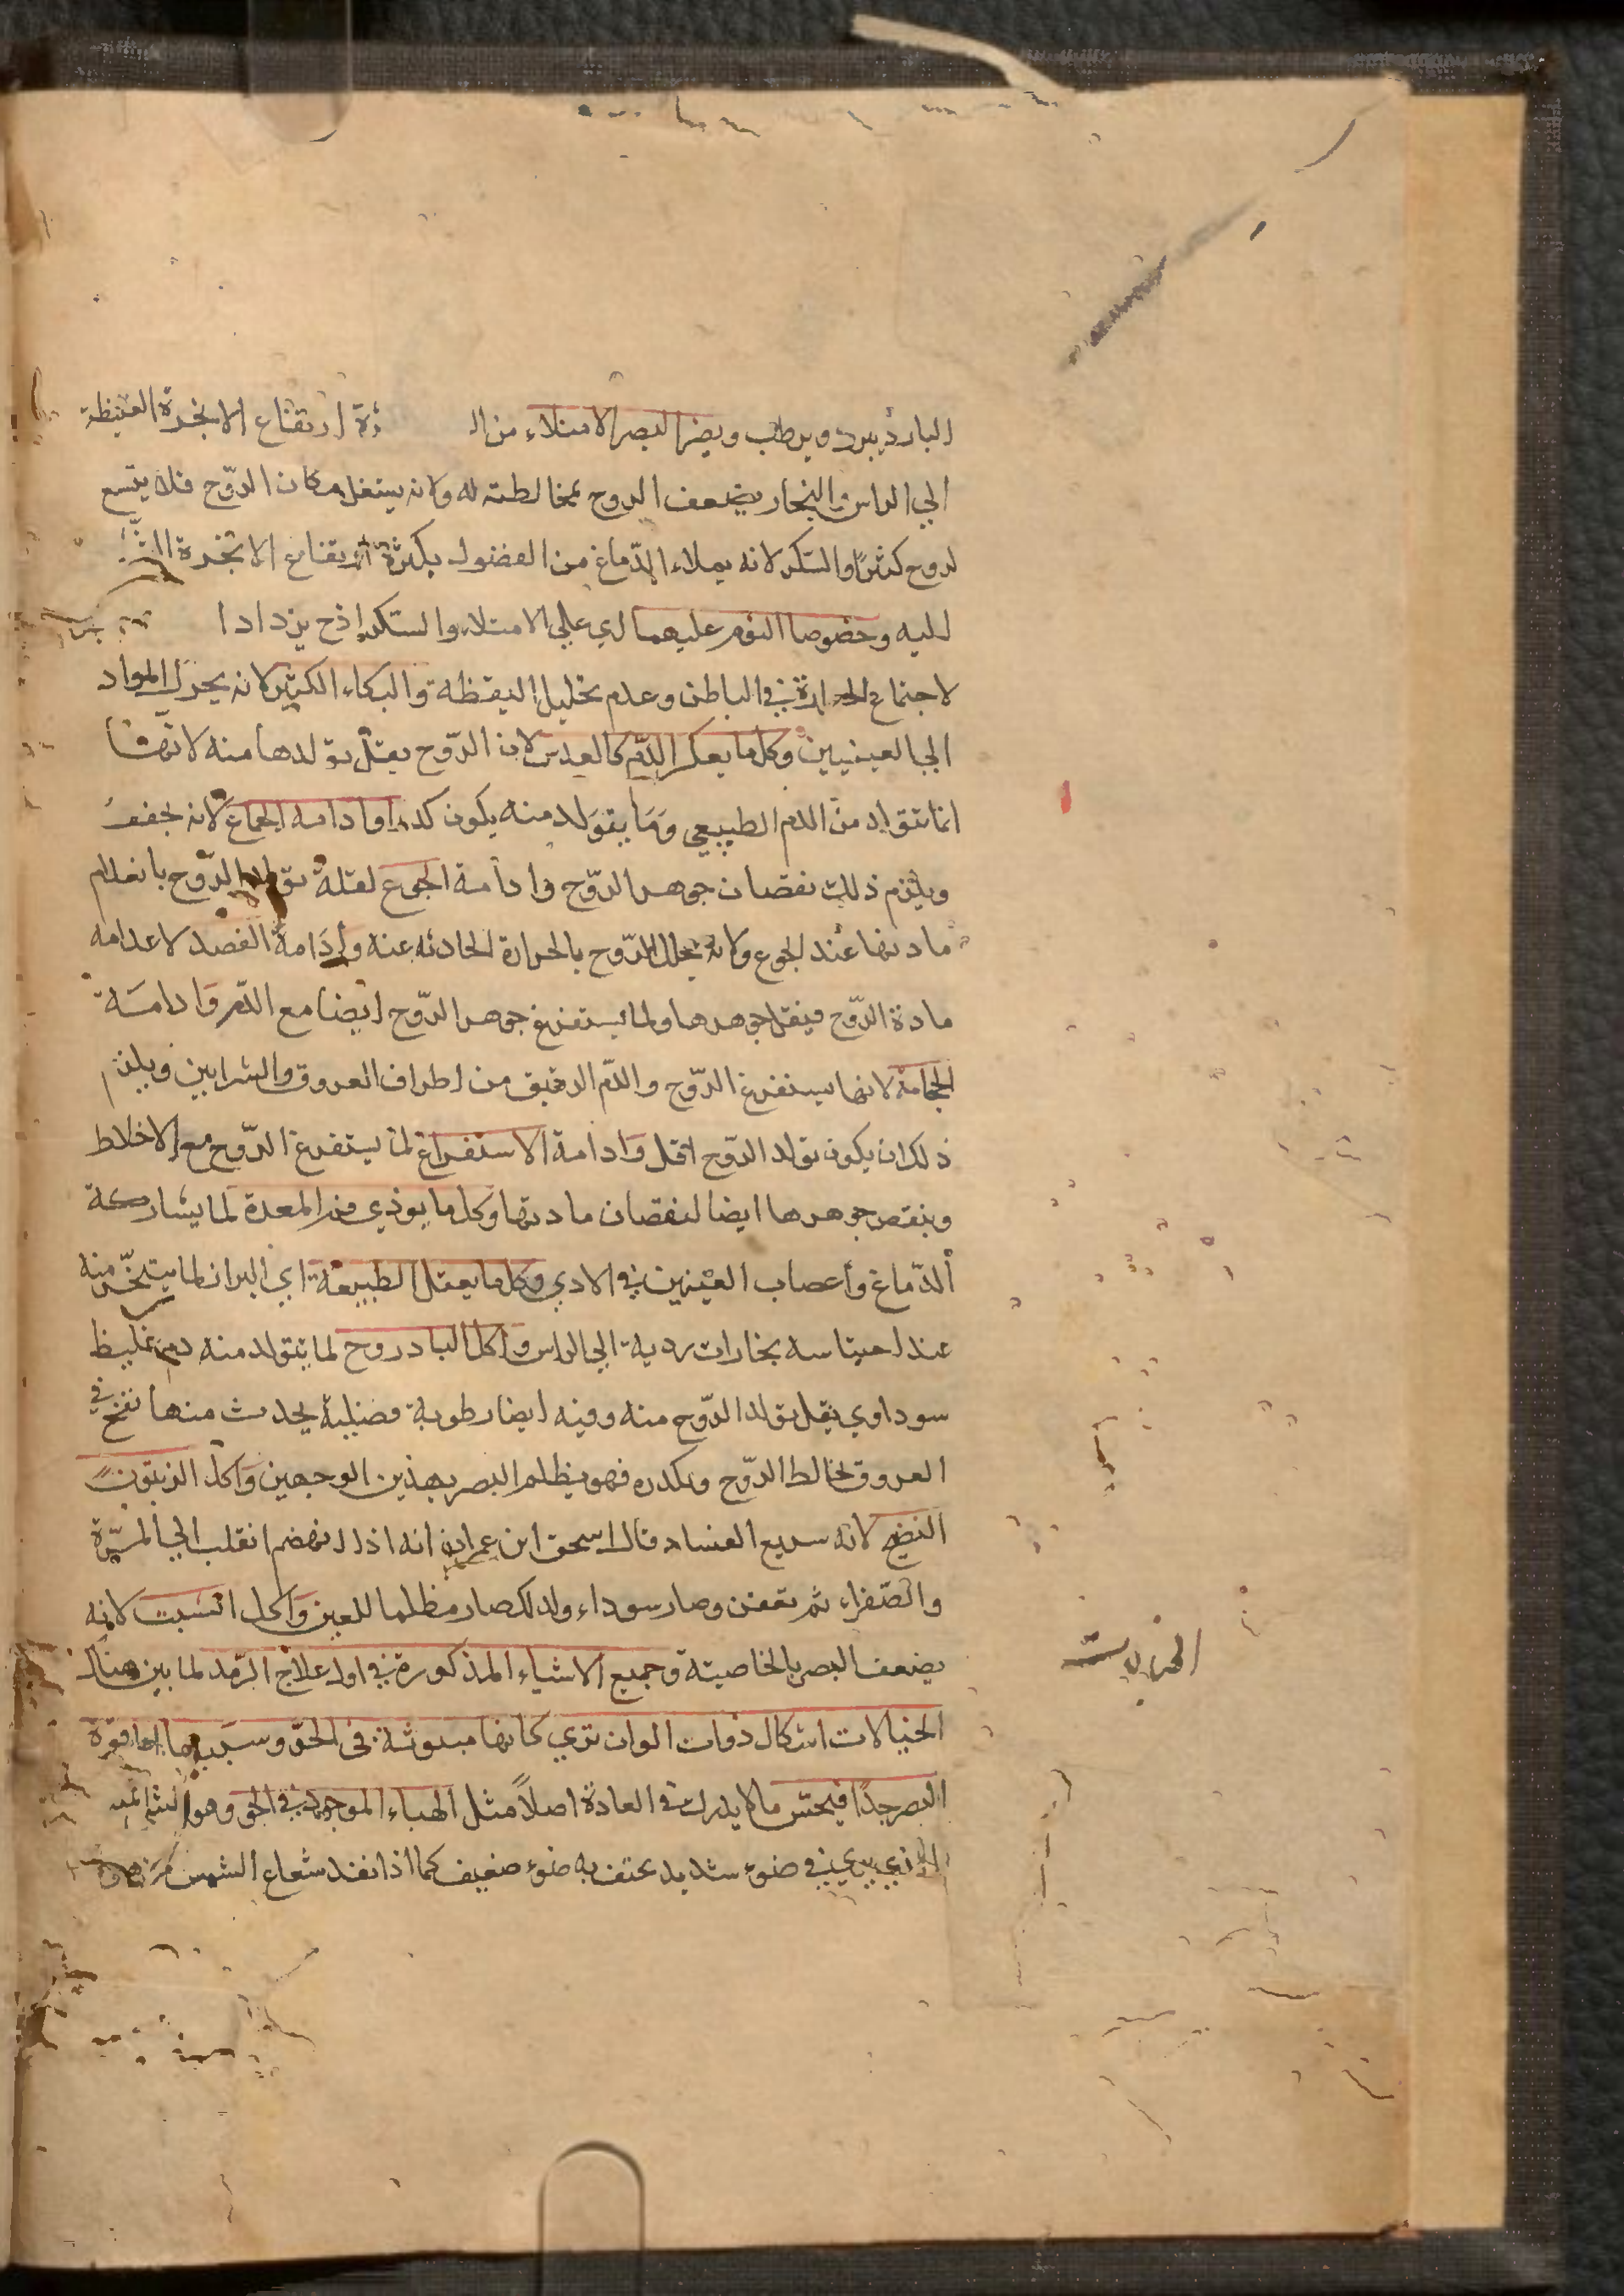 البارد يبرد ويرطب ويضر البصر الامتلاء من ارتفاع الابخرة الغليظة
الي الراس والبخار يضعف الروح بمخالطته له ولانه يشغل مكان الروح فلا يتسع
لروح كثير والسكر لانه يملاء الدماغ من الفضول بكثرة ارتفاع الابخرة
اليه وخصوصا النوم عليهما اي علي الامتلاء والسكر اذ ح يزداد
لاجتماع الحرارة في الباطن وعدم تحليل اليقظة والبكاء الكثير لانه يحرك المواد
الي العينين وكل ما يعكر الدم كالعدس لان الروح يقل تولدها منه لانها
انما تتولد من الدم الطبيعي وما يتولد منه يكون كدرا وادامة الجماع لانه يجفف
ويلزم ذلك نقصان جوهر الروح وادامة الجوع لقلة تولد الروح بانعدام
مادتها عند الجوع ولانه يحلل الروح بالحرارة الحادثه عنه وادامة الفصد لاعدامه
مادة الروح فيقل جوهرها ولما يستفرغ جوهر الروح ايضا مع الدم وادامة
الحجامة لانها يستفرغ الروح والدم الرقيق من اطراف العروق والشرايين ويلزم
ذلك ان يكون تولد الروح اقل وادامة الاستفراغ لما يستفرغ الروح مع الاخلاط
وينقص جوهرها ايضا لنقصان مادتها وكل ما يوذي فم المعدة لما يشاركه
الدماغ وأعصاب العينين في الاذي وكل ما يعقل الطبيعة اي البراز لما يتبخر منه
عند احتباسه بخارات ردية الي الراس واكل الباذروح لما يتولد منه دم غليظ
سوداوي يقل تولد الروح منه وفيه ايضا رطوبة فضلية يحدث منها نفخ في
العروق يخالط الروح ويكدره فهو يظلم البصر بهذين الوجهين واكل الزيتون
النضيج لانه سريع الفساد قال اسحق ابن عمران انه اذا انهضم انقلب الي المرة
والصفراء ثم تعفن وصار سوداء ولذلك صار مظلما للعين واكل الشبت لانه
يضعف البصر بالخاصية وجميع الاشياء المذكورة في اول علاج الرمد لما بين هناك
الخيالات اشكال ذوات الوان تري كانها مبثوثة في الجو وسببها اما قوة
البصر جدا فيحس ما لا يدرك في العادة اصلاً مثل الهباء الموجود في الجو وهو
الذي يري في ضوء شديد يحتف به ضوء ضعيف كما اذا نفذ شعاع الشمس من